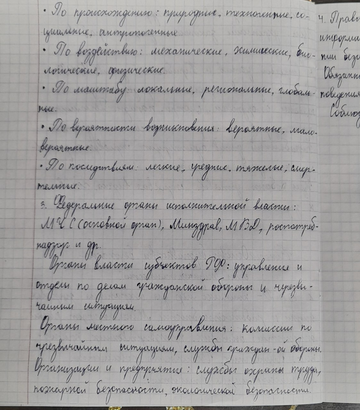 • По происхождению: природные, техногенные, со-
циальные, антропогенные
• По воздействию: механические, химические, био-
логические, физические.
• По масштабу локальные, региональные, глобаль-
ные.
• По вероятности возникновения вероятные, мало-
вероятные.
• По последствиям легкие, средние, тяжелые, смер-
тельные.
3. Федеральные органы исполнительной власти:
МЧС (основной орган), Минздрав, МВД, роспотреб-
надзор и др.
Органы власти субъектов РФ: управление и
отделы по делам гражданской обороны и чрезвы-
чайным ситуациям.
Органы местного самоуправления: комиссии по
чрезвычайным ситуациям, службы граждан-ой обороны.
Организации и предприятия: службы охраны труда,
пожарной безопасности, экологической безопасности
4. Прав
информ
нии безо
Обязанн
поведения
Соблюд